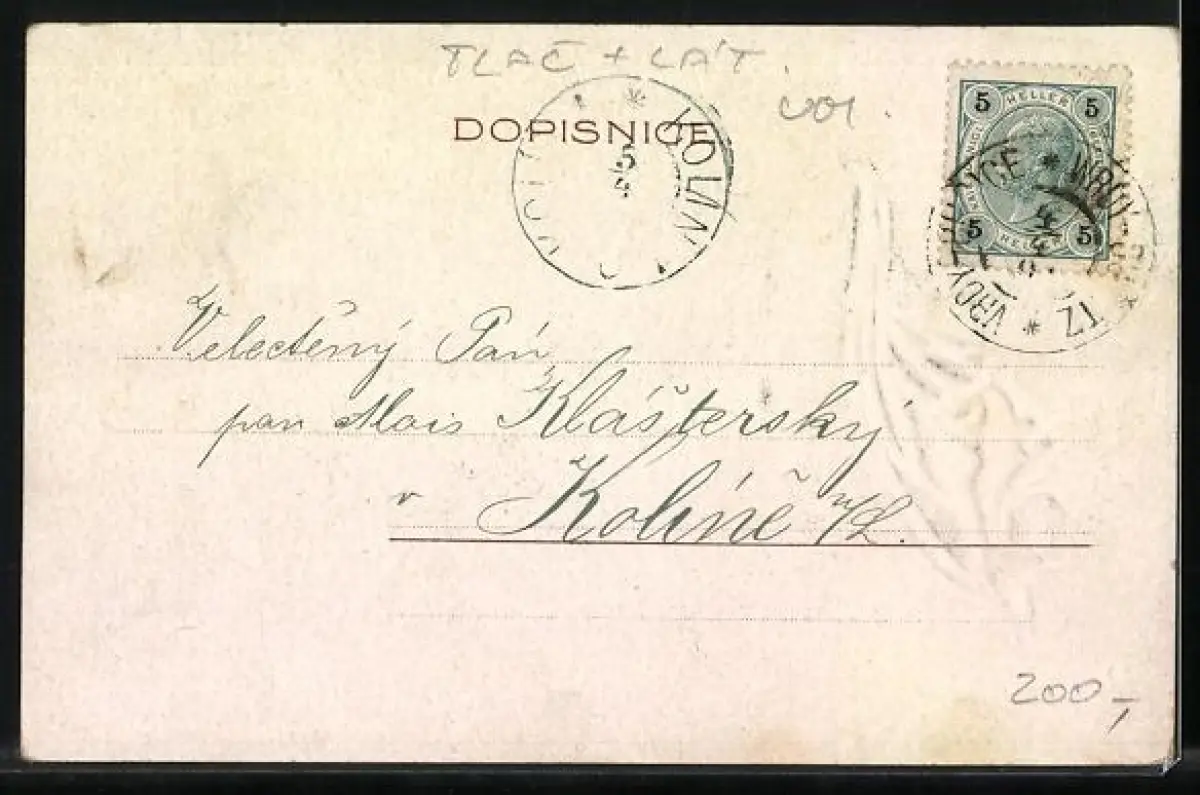 TLAČ + LÁT.
DOPISNICE
KOLIN
5
4
5 HELLER 5
5 HELLER 5
Velectěný Pán
pan Alois Klášterský
v Kolíně n/L.
200,-